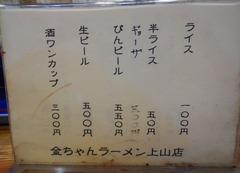 ライス 一〇〇円
半ライス 五〇円
ギョーザ
びんビール 五五〇円
生ビール 五〇〇円
酒ワンカップ 三〇〇円
金ちゃんラーメン上山店